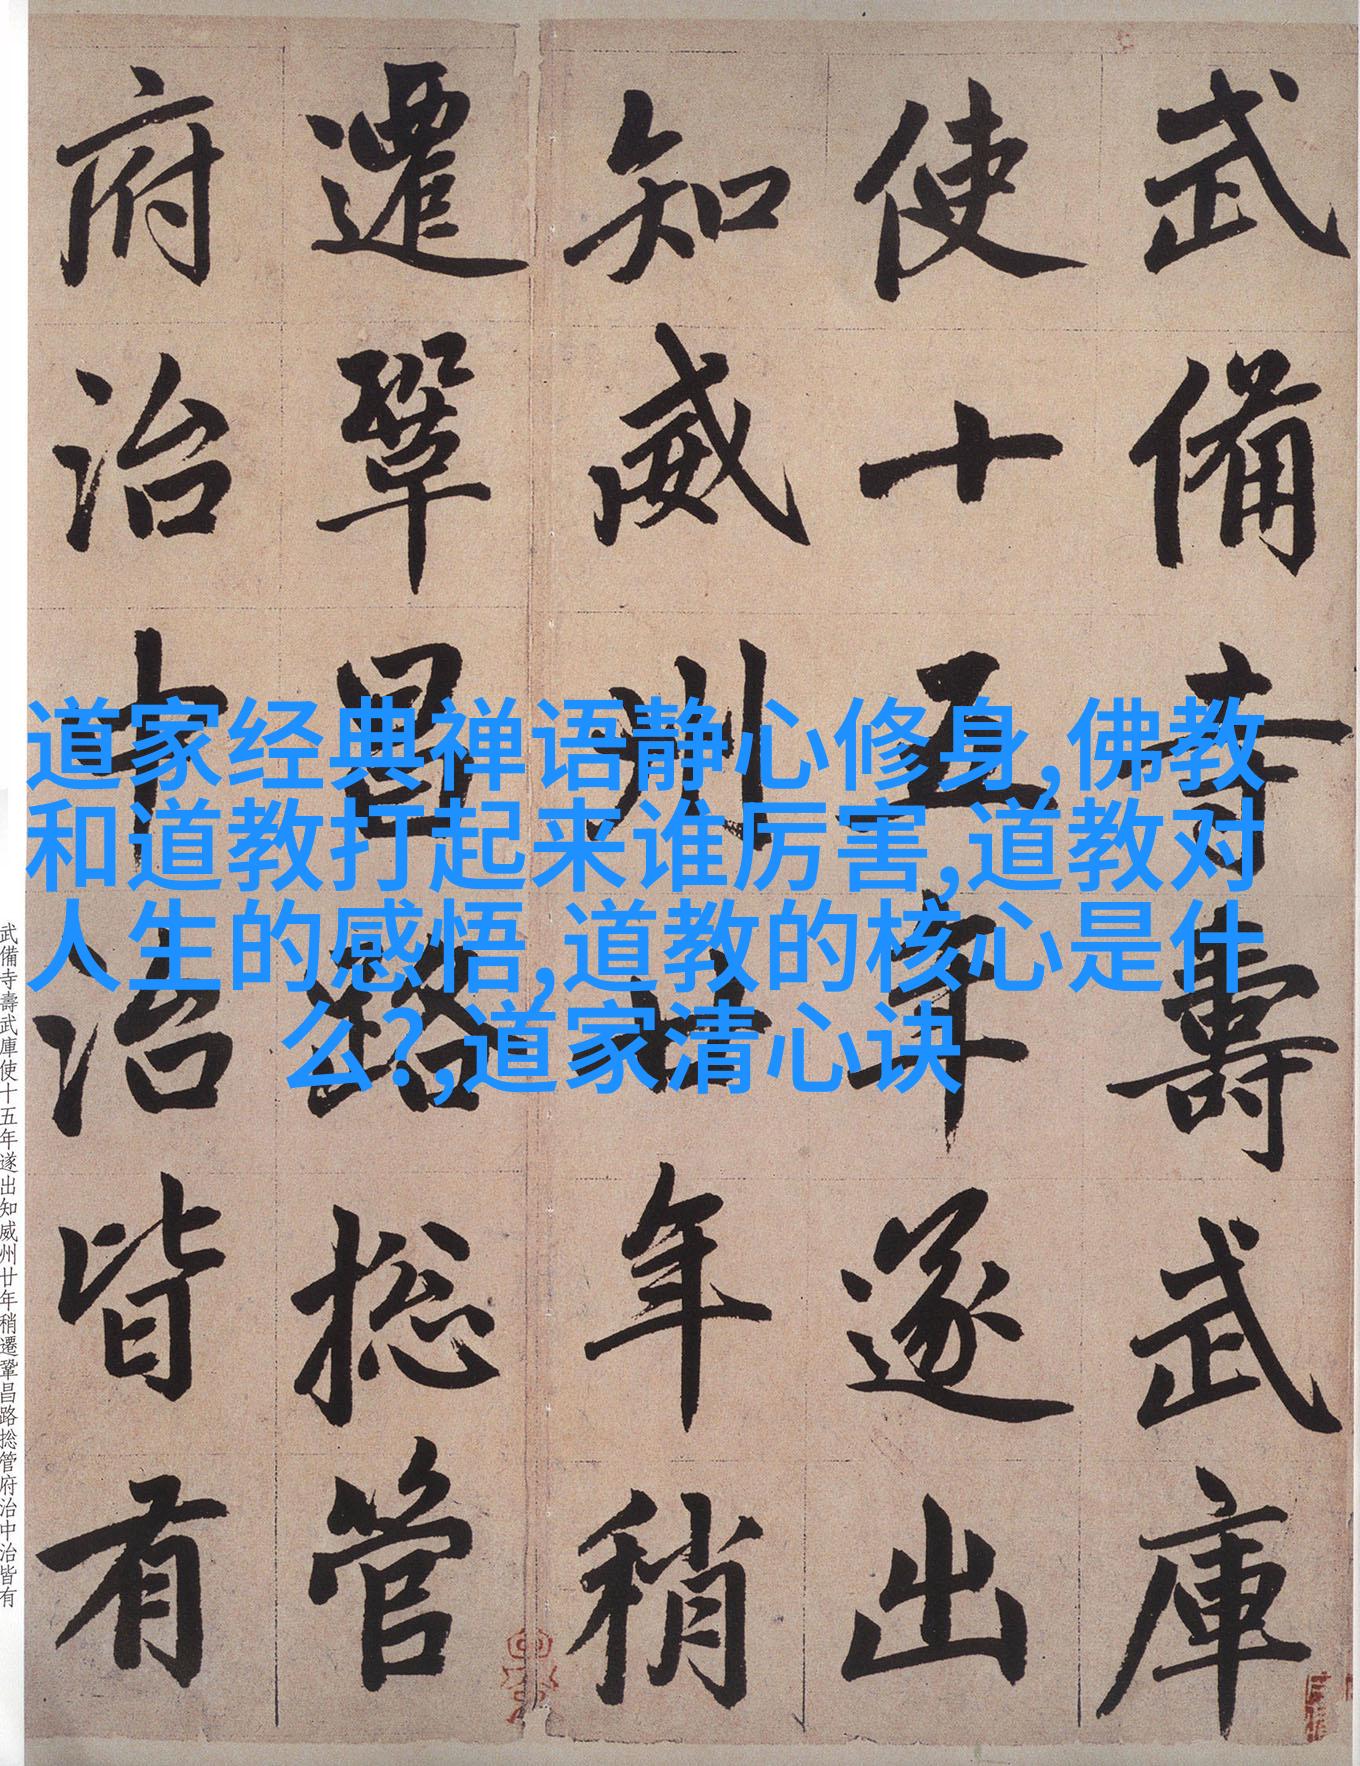 武備寺壽武庫
使十五年遂出
知威州廿年稍
遷鞏昌路捴管
府治中治皆有
道家经典禅语静心修身,佛教
和道教打起来谁厉害,道教对
人生的感悟,道教的核心是什
么?,道家清心诀
武備寺壽武庫使十五年遂出知威州廿年稍遷鞏昌路捴管府治中治皆有